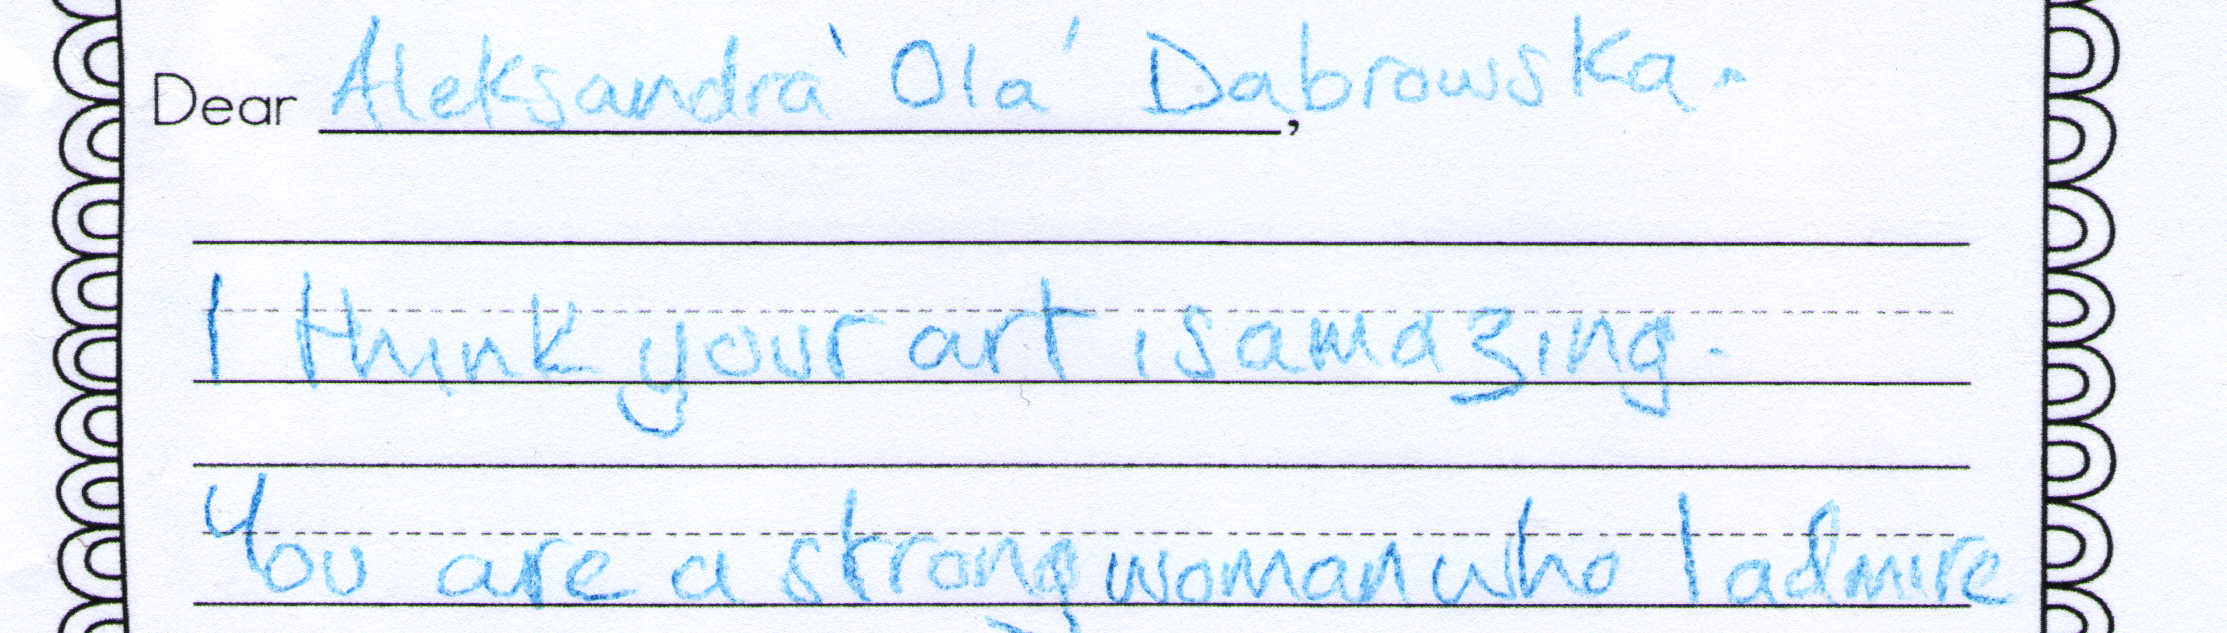 Dear Aleksandra 'Ola' Dabrowska.,
I think your art is amazing.
You are a strong woman who I admire